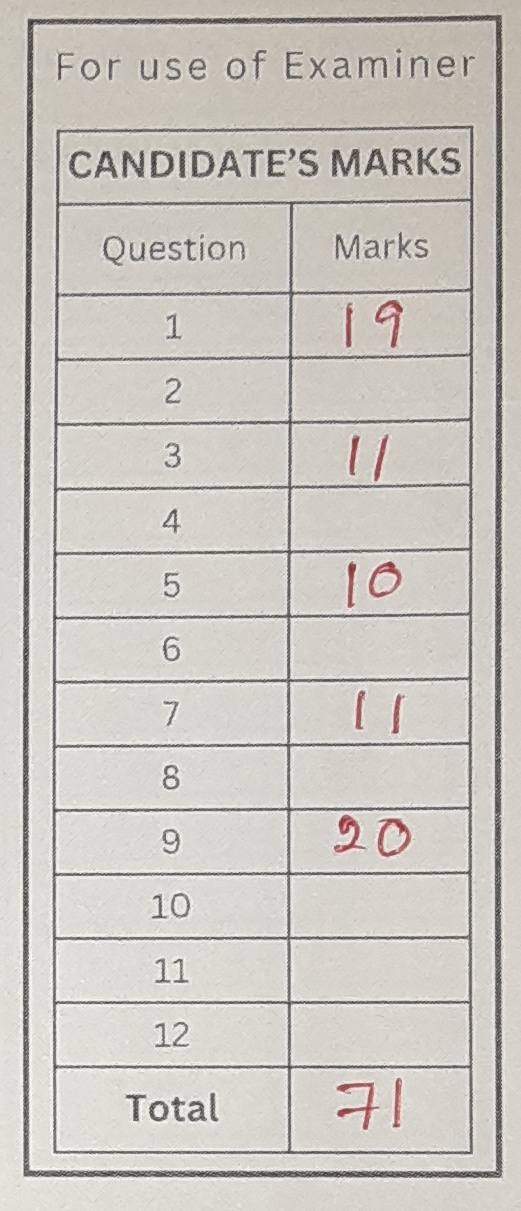 For use of Examiner
CANDIDATE'S MARKS
Question Marks
1 19
2
3 11
4
5 10
6
7 11
8
9 20
10
11
12
Total 71